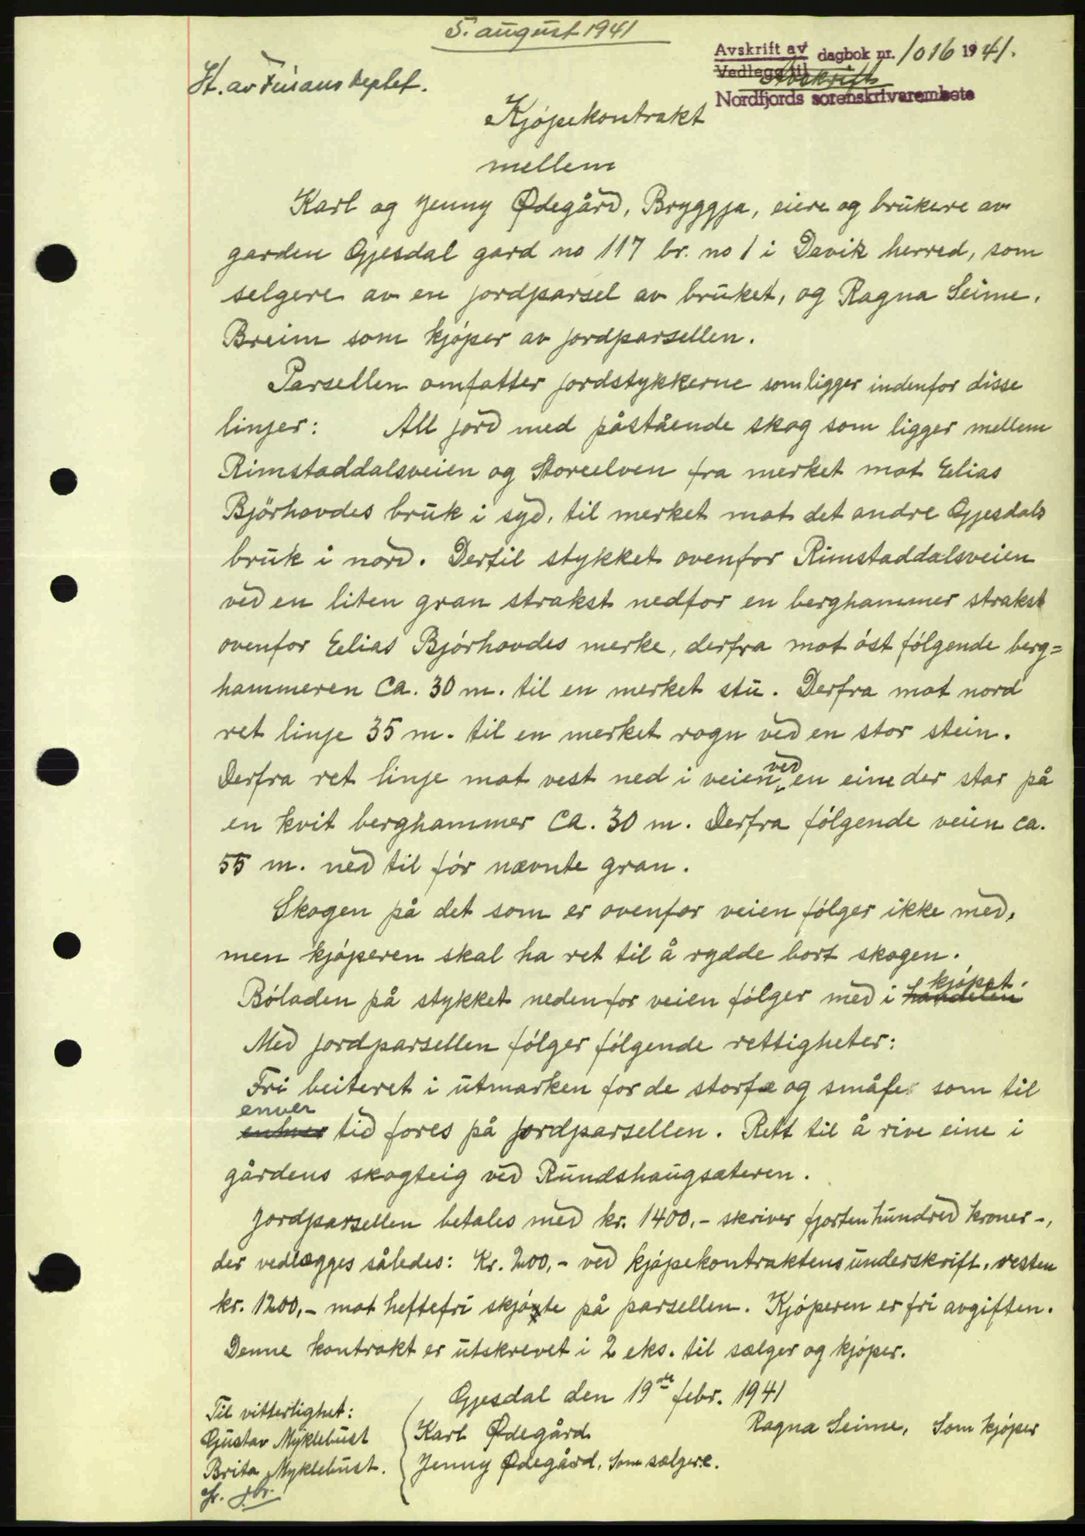 5. august 1941
Avskrift av dagbok nr. 1016 1941.
Vedlegg til Avskrift
Nordfjords sorenskrivarembete
St. av Finansdeptet.
Kjøpekontrakt
mellem
Karl og Jenny Ødegård, Bryggja, eiere og brukere av
garden Gjesdal gard no 117 br. no 1 i Davik herred, som
selgere av en jordparsel av bruket, og Ragna Seime,
Breim som kjøper av jordparsellen.
Parsellen omfatter jordstykkerne som ligger indenfor disse
linjer: All jord med påstående skog som ligger mellem
Rimstaddalsveien og Storeelven fra merket mot Elias
Bjørhovdes bruk i syd, til merket mot det andre Gjesdals
bruk i nord. Dertil stykket ovenfor Rimstaddalsveien
ved en liten gran strakst nedfor en berghammer strakst
ovenfor Elias Bjørhovdes merke, derfra mot øst følgende berg=
hammeren ca. 30 m. til en merket stu. Derfra mot nord
ret linje 35 m. til en merket rogn ved en stor stein.
Derfra ret linje mot vest ned i veien ved en eine der star på
en kvit berghammer ca. 30 m. Derfra følgende veien ca.
55 m. ned til før nævnte gran.
Skogen på det som er ovenfor veien følger ikke med,
men kjøperen skal ha ret til å rydde bort skogen.
Bøladen på stykket nedenfor veien følger med i handelen kjøpet.
Med jordparsellen følger følgende rettigheter:
Fri beiteret i utmarken for de storfæ og småfe som til
enhver enver tid fores på jordparsellen. Rett til å rive eine i
gårdens skogteig ved Rundshaugsæteren.
Jordparsellen betales med kr. 1400,- skriver fjorten hundred kroner -,
der vedlægges således: Kr. 200,- ved kjøpekontraktens underskrift, resten
kr. 1200,- mot heftefri skjøte på parsellen. Kjøperen er fri avgiften.
Denne kontrakt er utskrevet i 2 eks. til sælger og kjøper.
Gjesdal den 19de febr. 1941
Til vitterlighet:
Gustav Myklebust
Brita Myklebust.
Karl Ødegård
Jenny Ødegård, Som sælgere.
Ragna Seime, Som kjøper